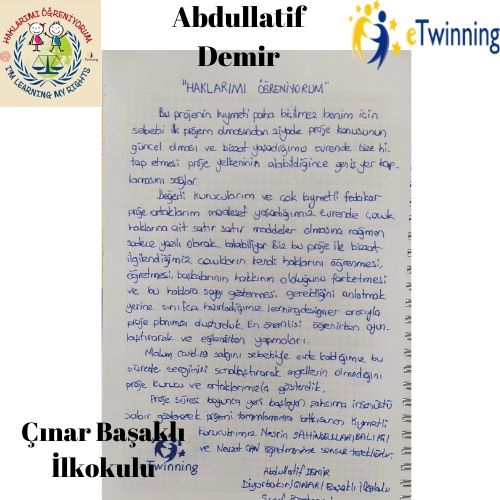 HAKLARIMI ÖĞRENİYORUM
I'M LEARNING MY RIGHTS
Abdullatif
Demir
eTwinning
"HAKLARIMI ÖĞRENİYORUM"
Bu projenin kıymeti paha biçilmez benim için
sebebi ilk projem olmasından ziyade proje konusunun
güncel olması ve bizzat yaşadığımız evrende bize hi-
tap etmesi proje yelkeninin alabildiğince geniş yer kap-
lamasını sağlar.
Değerli kurucularım ve çok kıymetli fedakar
proje ortaklarım maalesef yaşadığımız evrende çocuk
haklarına ait satır satır maddeler olmasına rağmen
sadece yazılı olarak kalabiliyor. Biz bu proje ile bizzat
ilgilendiğimiz çocukların kendi haklarını öğrenmesi,
öğretmesi, başkalarının hakkının olduğunu farketmesi
ve bu haklara saygı göstermesi gerektiğini anlatmak
yerine sınıfça hazırladığımız learningdesigner aracıyla
proje planımızı oluşturduk. En önemlisi öğrenirken oyun-
laştırarak ve eğlenirken yapmaları.
Malum covid-19 salgını sebebiyle evde kaldığımız bu
süreçte sevginizi sanallaştırarak engellerin olmadığını
proje kurucu ve ortaklarımızla gösterdik.
Proje süresi boyunca yeni başlayan şahsıma insanüstü
sabır göstererek projemi tamamlamama katkısı olan kıymetli
kurucularımız Nesrin
ve Nevzat öğretmenime sonsuz teşekkürler.
Abdullatif DEMİR
Diyarbakır/ÇINAR/Başaklı İlkokulu
Çınar Başaklı
İlkokulu
Twinning